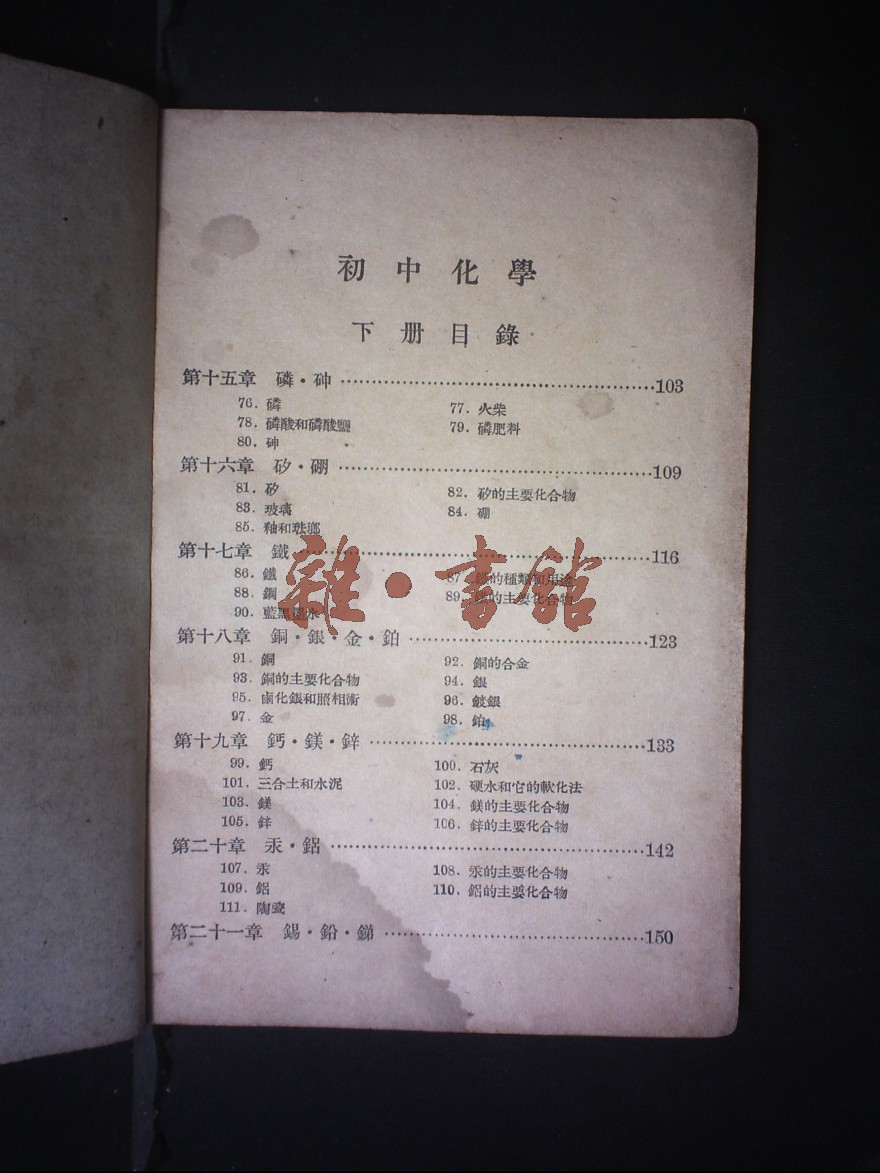 初中化學
下册目錄
第十五章 磷·砷……103
76. 磷 77. 火柴
78. 磷酸和磷酸鹽 79. 磷肥料
80. 砷
第十六章 矽·硼……109
81. 矽 82. 矽的主要化合物
83. 玻璃 84. 硼
85. 釉和琺瑯
第十七章 鐵……116
86. 鐵 87. 的種類和用途
88. 鋼 89. 的主要化合物
90. 藍黑墨水
雜·書館
第十八章 銅·銀·金·鉑……123
91. 銅 92. 銅的合金
93. 銅的主要化合物 94. 銀
95. 鹵化銀和照相術 96. 鍍銀
97. 金 98. 鉑
第十九章 鈣·鎂·鋅……133
99. 鈣 100. 石灰
101. 三合土和水泥 102. 硬水和它的軟化法
103. 鎂 104. 鎂的主要化合物
105. 鋅 106. 鋅的主要化合物
第二十章 汞·鋁……142
107. 汞 108. 汞的主要化合物
109. 鋁 110. 鋁的主要化合物
111. 陶瓷
第二十一章 錫·鉛·銻……150